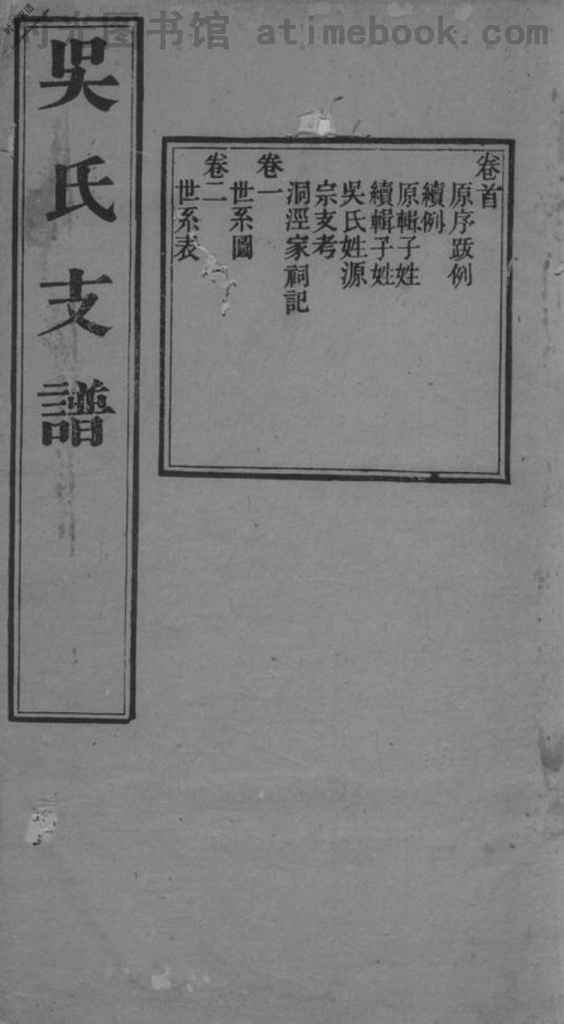 吳氏支譜
卷首
原序跋例
續例
原輯子姓
續輯子姓
吳氏姓源
宗支考
洞涇家祠記
卷一
世系圖
卷二
世系表
时光图书馆 atimebook.com